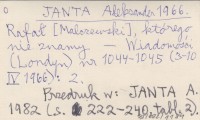 JANTA Aleksander 1966.
Rafał [Malczewski], którego
nie znamy. — Wiadomości
(Londyn) nr 1044-1045 (3-10
IV 1966) : 2.
Przedruk w: JANTA A.
1982 (s. 222-240, tabl. 2).